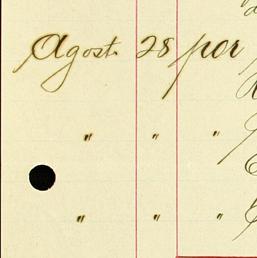 Agost. 28 por
" " "
" " "